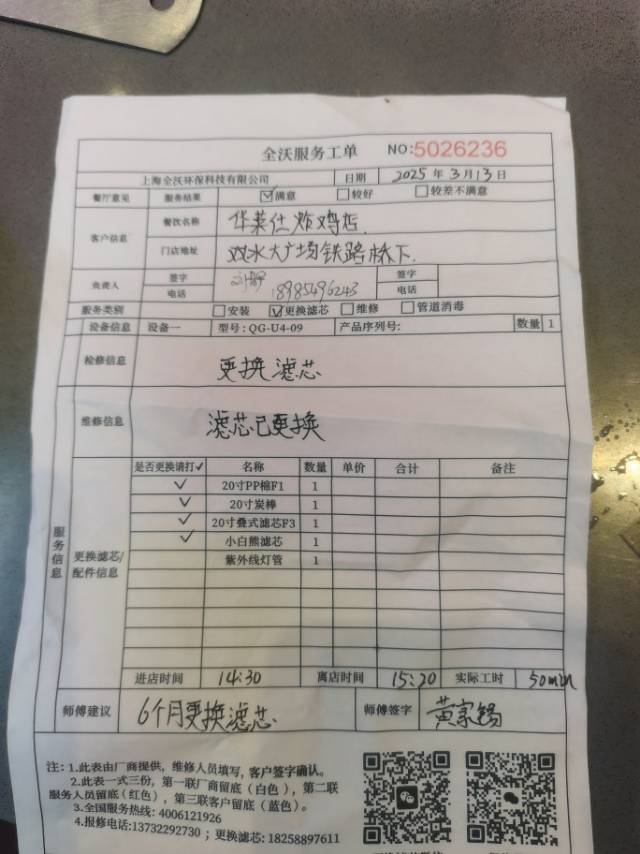 全沃服务工单 NO:5026236
上海全沃环保科技有限公司 日期 2025 年 3 月 13 日
餐厅意见 服务结果 ☑满意 □较好 □较差不满意
客户信息 餐饮名称 华莱仕炸鸡店
门店地址 双水大广场铁路桥下.
负责人 签字 签字
电话 18985496243 电话
服务类别 □安装 ☑更换滤芯 □维修 □管道消毒
设备信息 设备一 型号: QG-U4-09 产品序列号: 数量 1
检修信息 更换滤芯
维修信息 滤芯已更换
服务信息
更换滤芯/配件信息
是否更换请打✓ 名称 数量 单价 合计 备注
✓ 20寸PP棉F1 1
✓ 20寸炭棒 1
✓ 20寸叠式滤芯F3 1
✓ 小白熊滤芯 1
紫外线灯管 1
进店时间 14:30 离店时间 15:20 实际工时 50min
师傅建议 6个月更换滤芯 师傅签字 黄家锡
注: 1.此表由厂商提供, 维修人员填写, 客户签字确认。
2.此表一式三份, 第一联厂商留底 (白色), 第二联
服务人员留底(红色), 第三联客户留底 (蓝色)。
3.全国服务热线: 4006121926
4.报修电话:13732292730 ; 更换滤芯: 18258897611